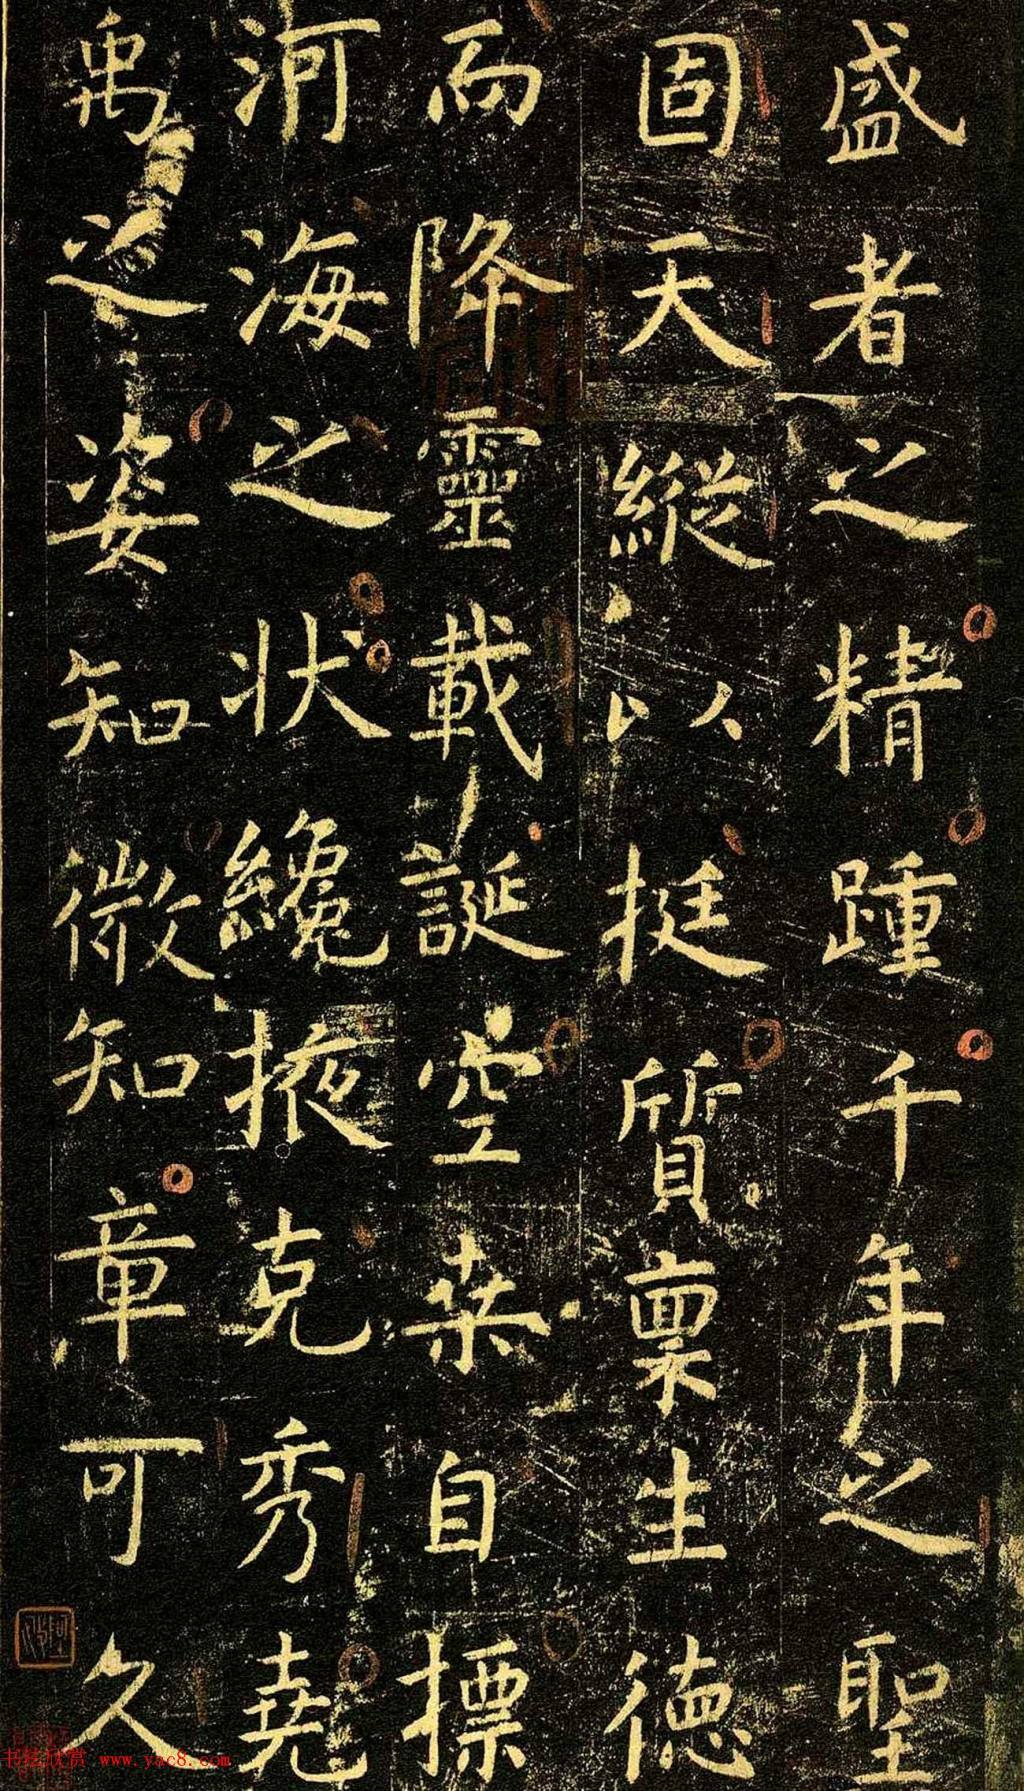 盛者之精踵千年之聖
固天縱以挺質禀生德
而降靈載誕空桒自標
河海之状纔掖克秀堯
禹之姿知微知章可久
书法欣赏 www.yac8.com